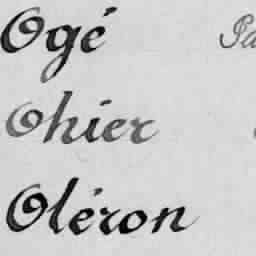 Ogé
Ohier
Oléron